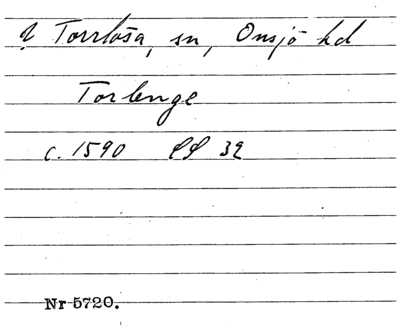 ? Torrlösa, sn, Onsjö hd
Torlenge
c. 1590 LL 32
Nr 5720.